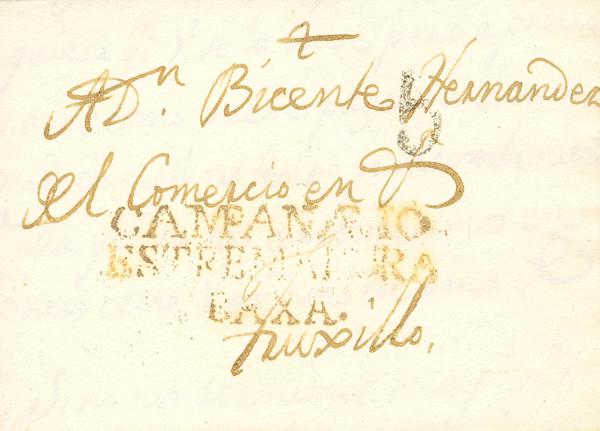 A Dn. Bicente Hernandez
del Comercio en
CAMPANARIO
ESTREMADURA
BAXA.
Truxillo.